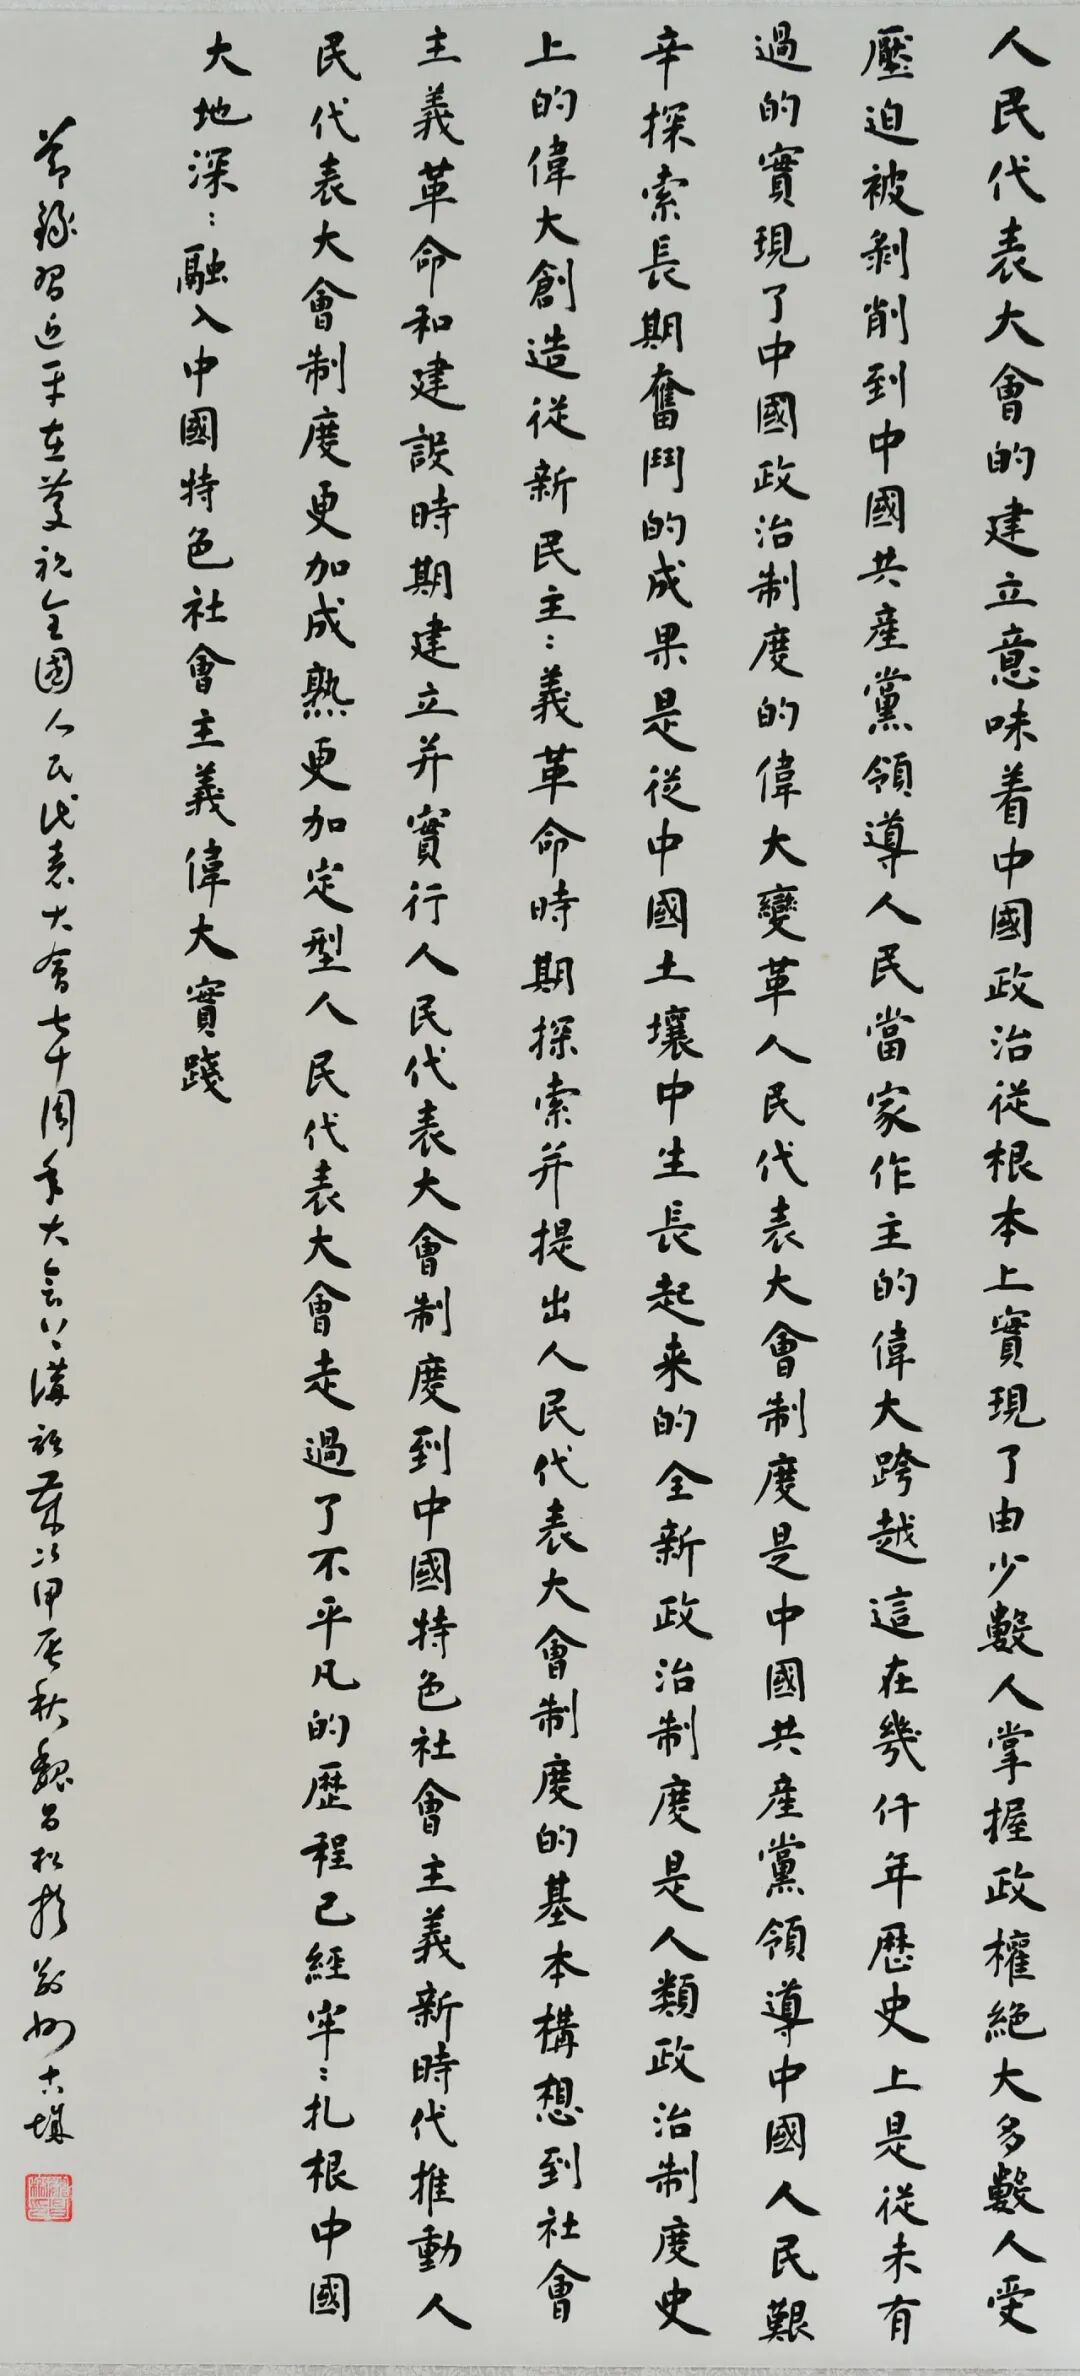 人民代表大會的建立意味着中國政治從根本上實現了由少數人掌握政權絶大多數人受
壓迫被剥削到中國共産黨領導人民當家作主的偉大跨越這在幾仟年歷史上是從未有
過的實現了中國政治制度的偉大變革人民代表大會制度是中國共産黨領導中國人民艱
辛探索長期奮鬥的成果是從中國土壤中生長起来的全新政治制度是人類政治制度史
上的偉大創造從新民主:義革命時期探索并提出人民代表大會制度的基本構想到社會
主義革命和建設時期建立并實行人民代表大會制度到中國特色社會主義新時代推動人
民代表大會制度更加成熟更加定型人民代表大會走過了不平凡的歷程已經牢:扎根中國
大地深:融入中國特色社會主義偉大實踐
節錄習近平在慶祝全國人民代表大會七十周年大會上講話歲次甲辰秋魏昌松於